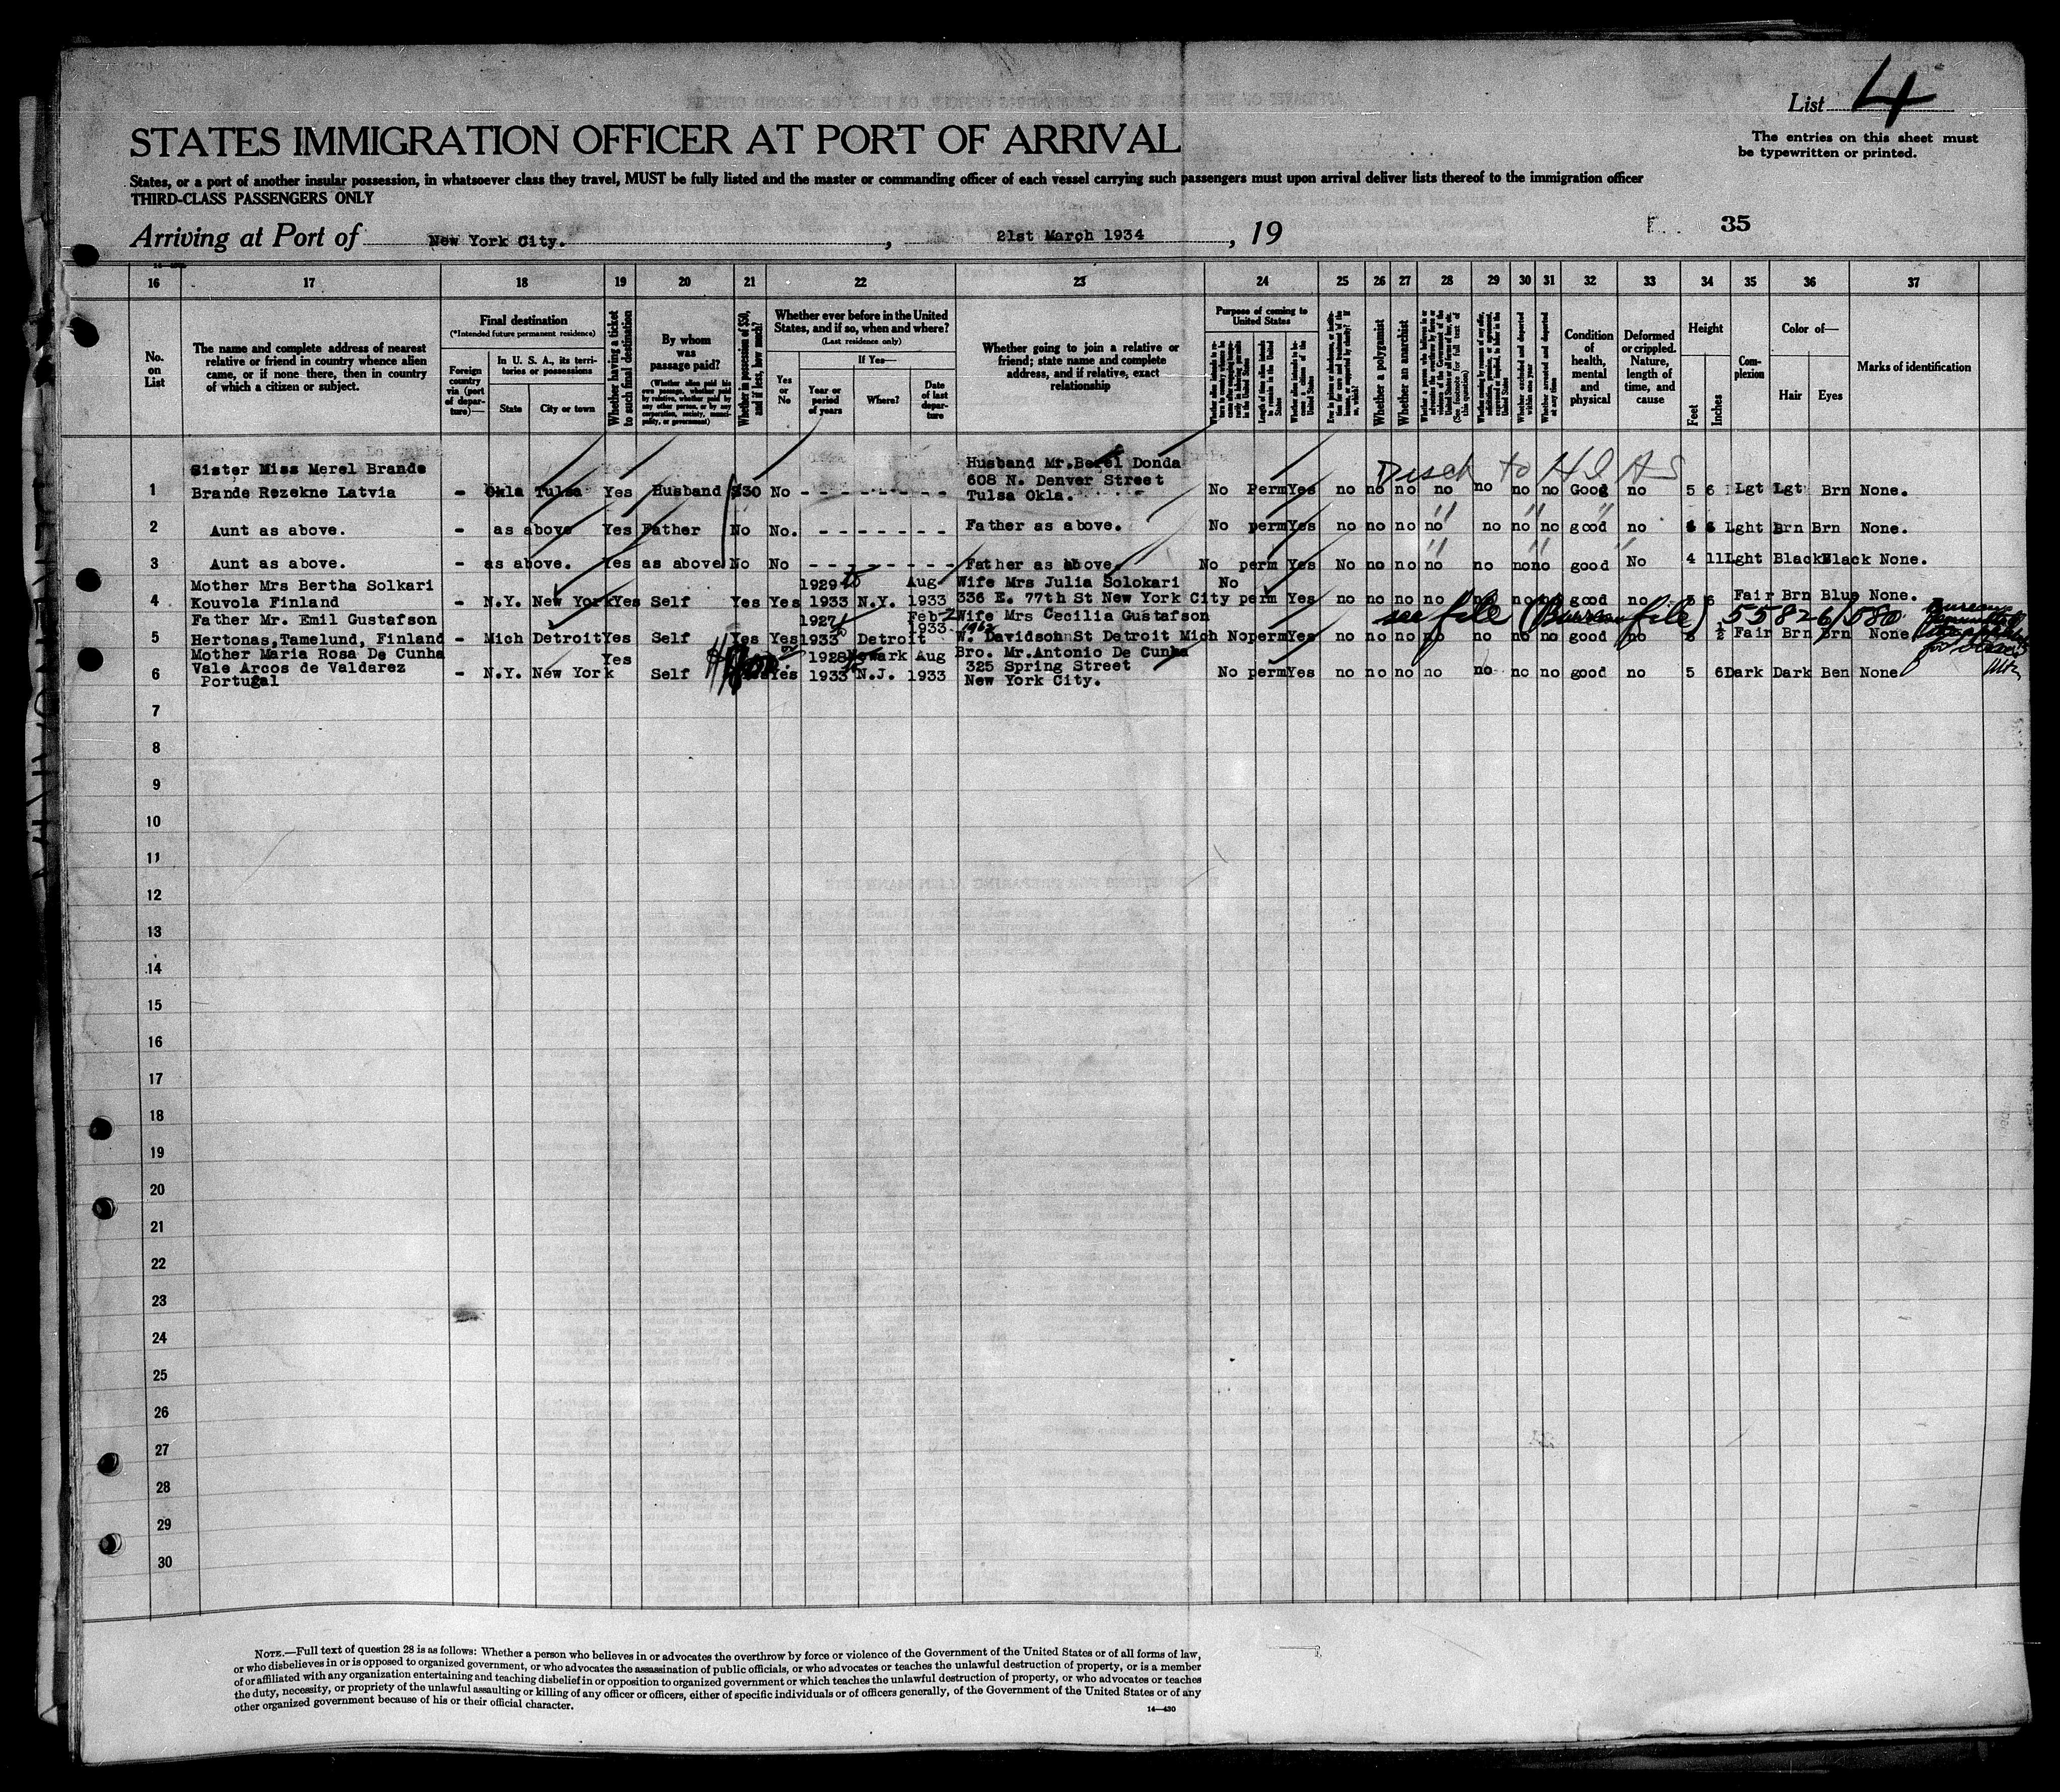 List 4
The entries on this sheet must
be typewritten or printed.
STATES IMMIGRATION OFFICER AT PORT OF ARRIVAL
States, or a port of another insular possession, in whatsoever class they travel, MUST be fully listed and the master or commanding officer of each vessel carrying such passengers must upon arrival deliver lists thereof to the immigration officer
THIRD-CLASS PASSENGERS ONLY
Arriving at Port of New York City. , 21st March 1934 , 19
35
16 17 18 19 20 21 22 23 24 25 26 27 28 29 30 31 32 33 34 35 36 37
No. on List
The name and complete address of nearest
relative or friend in country whence alien
came, or if none there, then in country
of which a citizen or subject.
Final destination
(*Intended future permanent residence)
Foreign country via (port of departure)—
In U. S. A., its territories or possessions
State
City or town
Whether having a ticket to such final destination
By whom was passage paid?
(Whether alien paid his own passage, whether paid by relative, whether paid by any other person, or by any corporation, society, municipality, or government)
Whether in possession of $50, and if less, how much?
Whether ever before in the United
States, and if so, when and where?
(Last residence only)
Yes or No
If Yes—
Year or period of years
Where?
Date of last departure
Whether going to join a relative or
friend; state name and complete
address, and if relative, exact
relationship
Purpose of coming to United States
Whether a polygamist
Whether an anarchist
Whether excluded and deported within one year
Whether arrested and deported at any time
Condition of health, mental and physical
Deformed or crippled. Nature, length of time, and cause
Height
Feet
Inches
Complexion
Color of—
Hair
Eyes
Marks of identification
Disch to HIAS
Sister Miss Merel Brande Husband Mr. Berel Donda
608 N. Denver Street
1 Brande Rezekne Latvia - Okla Tulsa Yes Husband $30 No - - - - - - - - - Tulsa Okla. No Perm Yes no no no no no no no Good no 5 6 Lgt Lgt Brn None.
2 Aunt as above. - as above Yes Father No No. - - - - - - - - Father as above. No perm Yes no no no no no no no good no Lght Brn Brn None.
3 Aunt as above. - as above. Yes as above No No - - - - - - - - Father as above. No perm Yes No no no no no no no good No 4 11 Lght Black Black None.
Mother Mrs Bertha Solkari 1929 to Aug Wife Mrs Julia Solokari No
4 Kouvola Finland - N.Y. New York Yes Self Yes Yes 1933 N.Y. 1933 336 E. 77th St New York City perm Yes no no no no no no no good no 5 6 Fair Brn Blue None.
see file (Bureau file) 55826/580
Father Mr. Emil Gustafson 1927 Feb 2 Wife Mrs Cecilia Gustafson
5 Hertonas, Tamelund, Finland - Mich Detroit Yes Self Yes Yes 1933 Detroit 1933 W. Davidson St Detroit Mich No perm Yes no no no no no no no good no Fair Brn Brn None
Mother Maria Rosa De Cunha Yes 1928 Newark Aug Bro. Mr. Antonio De Cunha
Vale Arcos de Valdarez 325 Spring Street
6 Portugal - N.Y. New York Self Yes 1933 N.J. 1933 New York City. No perm Yes no no no no no no no good no 5 6 Dark Dark Ben None
7
8
9
10
11
12
13
14
15
16
17
18
19
20
21
22
23
24
25
26
27
28
29
30
NOTE.—Full text of question 28 is as follows: Whether a person who believes in or advocates the overthrow by force or violence of the Government of the United States or of all forms of law,
or who disbelieves in or is opposed to organized government, or who advocates the assassination of public officials, or who advocates or teaches the unlawful destruction of property, or is a member
of or affiliated with any organization entertaining and teaching disbelief in or opposition to organized government or which teaches the unlawful destruction of property, or who advocates or teaches
the duty, necessity, or propriety of the unlawful assaulting or killing of any officer or officers, either of specific individuals or of officers generally, of the Government of the United States or of any
other organized government because of his or their official character.
14—430